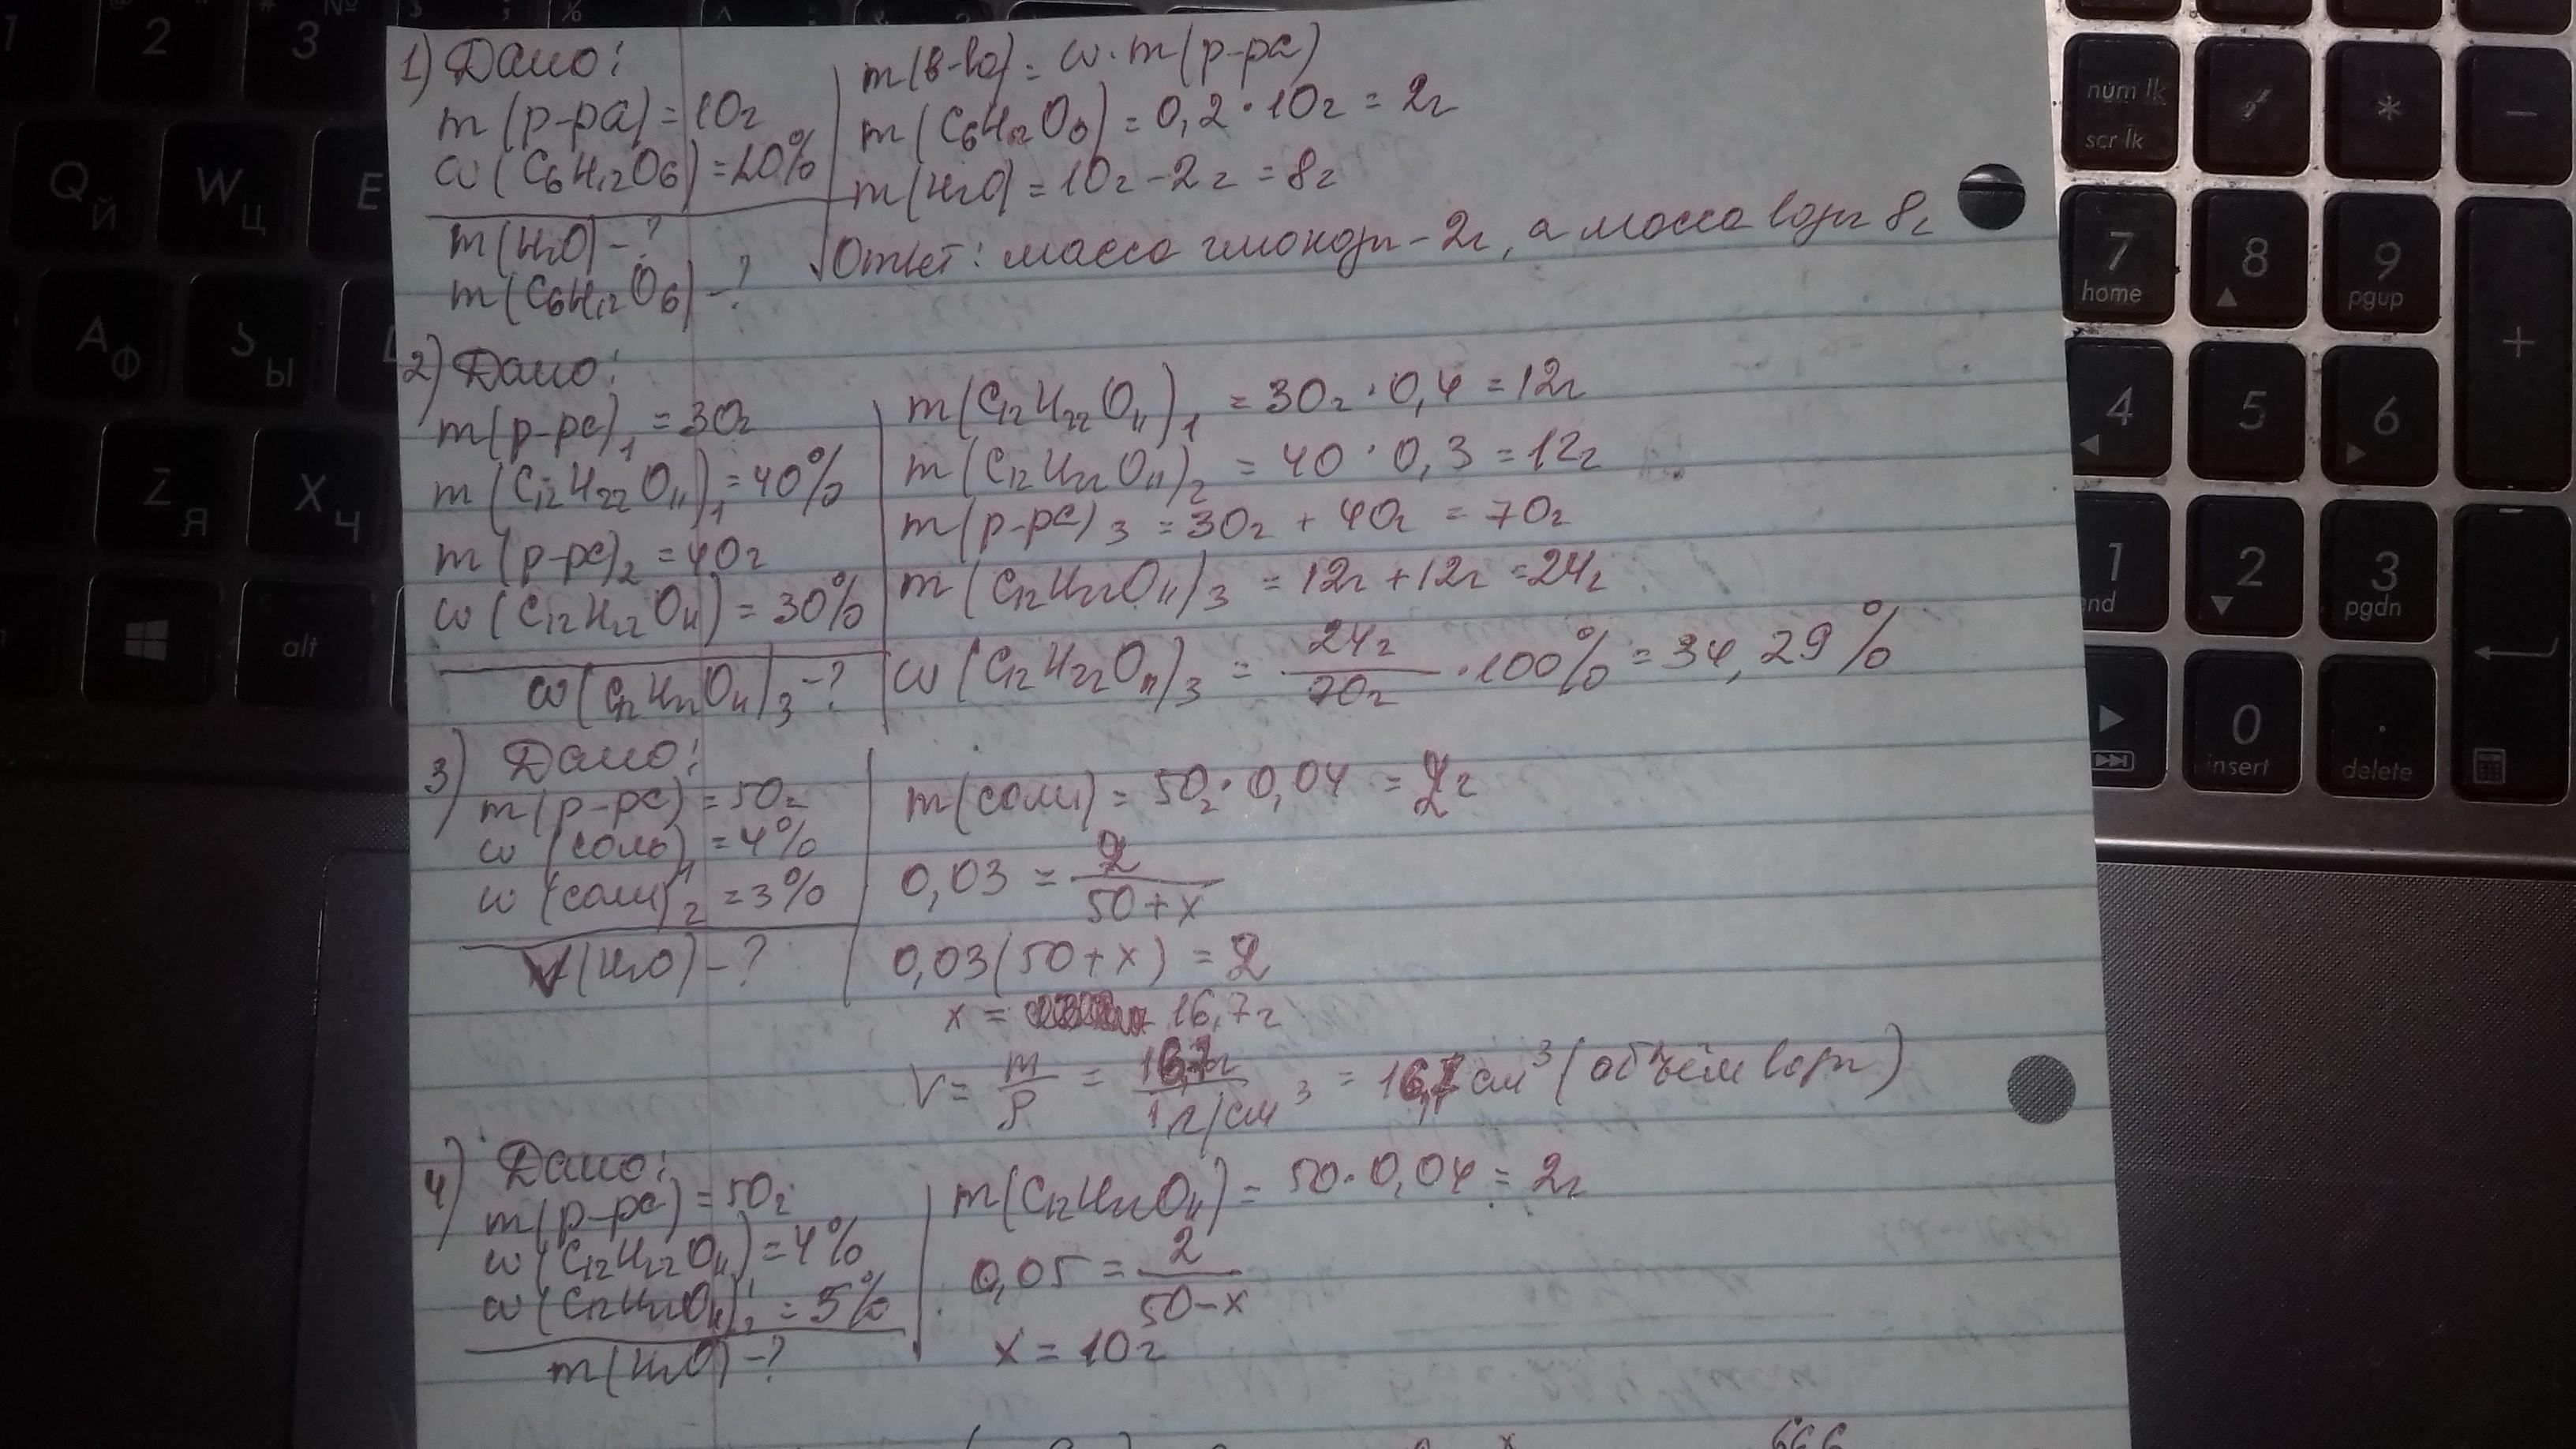 1) Дано:
m(р-ра) = 10г
ω(C₆H₁₂O₆) = 20%
m(H₂O) - ?
m(C₆H₁₂O₆) - ?
m(в-ва) = ω · m(р-ра)
m(C₆H₁₂O₆) = 0,2 · 10г = 2г
m(H₂O) = 10г - 2г = 8г
Ответ: масса глюкозы - 2г, а масса воды 8г
2) Дано:
m(р-ра)₁ = 30г
m(C₁₂H₂₂O₁₁)₁ = 40%
m(р-ра)₂ = 40г
ω(C₁₂H₂₂O₁₁) = 30%
ω(C₁₂H₂₂O₁₁)₃ - ?
m(C₁₂H₂₂O₁₁)₁ = 30г · 0,4 = 12г
m(C₁₂H₂₂O₁₁)₂ = 40 · 0,3 = 12г
m(р-ра)₃ = 30г + 40г = 70г
m(C₁₂H₂₂O₁₁)₃ = 12г + 12г = 24г
ω(C₁₂H₂₂O₁₁)₃ = 24г / 70г · 100% = 34,29%
3) Дано:
m(р-ра) = 50г
ω(соль)₁ = 4%
ω(соли)₂ = 3%
V(H₂O) - ?
m(соли) = 50г · 0,04 = 2г
0,03 = 2 / 50+x
0,03(50+x) = 2
x = 16,7г
V = m / ρ = 16,7г / 1г/см³ = 16,7 см³ (объём воды)
4) Дано:
m(р-ра) = 50г
ω(C₁₂H₂₂O₁₁)₁ = 4%
ω(C₁₂H₂₂O₁₁)₂ = 5%
m(H₂O) - ?
m(C₁₂H₂₂O₁₁) = 50 · 0,04 = 2г
0,05 = 2 / 50-x
x = 10г
1
2
3
Q Й
W Ц
E
A Ф
S Ы
Z Я
X Ч
alt
num lk
scr lk
/
*
-
7 home
8
9 pgup
+
4
5
6
1
2
3 pgdn
0 insert
. delete